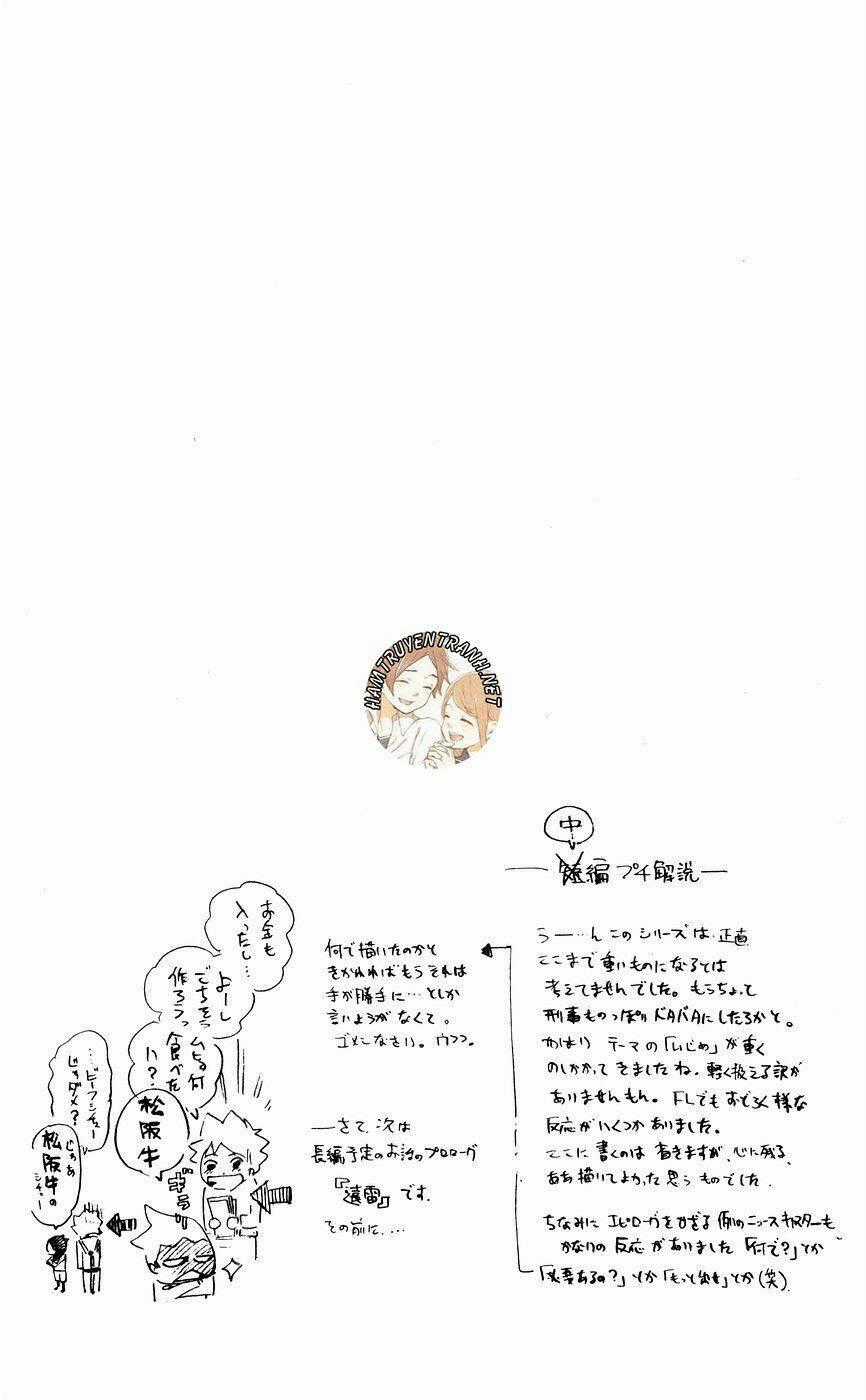 HAMTRUYENTRANH.NET
中
編 プチ解説
うー…ん このシリーズは 正直
ここまで重いものになるとは
考えてませんでした。もうちょっと
刑事ものっぽい ドタバタにしたるかと。
やはり テーマの「いじめ」が重く
のしかかって きましたね。軽く扱える訳が
ありませんもん。F.L.でもおどろく様な
反応がいくつかありました。
ここに書くのは 省きますが、心に残る、
ああ描いてよかった思うものでした。
ちなみに エピローグをかざる 例のニュースキャスターも
かなりの 反応がありました 「何で?」とか
あるの?」とか「もっと出せ」とか(笑)
何で描いたのかと
きかれればもうそれは
手が勝手に…としか
言いようがなくて。
ゴメンなさい。ウフフ。
―さて、次は
長編予定のお話のプロローグ
『遠雷』です。
その前に…
お金も
入ったし…
よーし
ごちそう
作ろうっ
ムヒョ何
食べた
い?
松阪牛
ギラっ
…ビーフシチュー
じゃダメ?
じゃあ
松阪牛の
シチュー